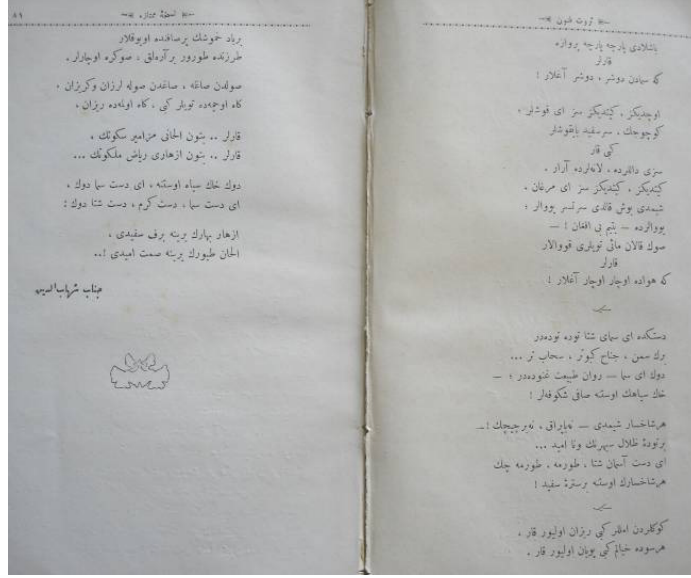 ثروت فنون
باشلادی پارچه پارچه پروازه
قارلر
كه سمادن دوشر ، دوشر آغلار !
اوچدیكز ، كیتدیكز سز ای قوشلر ،
كوچوجك ، سر سفید بایقوشلر
كبی قار
سزی داللرده ، لانه‌لرده آرار .
كیتدیكز ، كیتدیكز سز ای مرغان .
شیمدی بوش قالدی سرتسر یووالر ؛
یووالرده — یتیم بی افغان ! —
صوك قالان مائی تویلری قووالار
قارلر
كه هواده اوچار اوچار آغلار !
دستكده ای سمای شتا توده توده‌در
برك سمن ، جناح كبوتر ، سحاب تر ...
دوك ای سما — روان طبیعت غنوده‌در ؛ —
خاك سیاهك اوستنه صافی شكوفه‌لر !
هر شاخسار شیمدی — نه یاپراق ، نه بر چیچك ! —
بر تودهٔ ظلال سپهرنك و نا امید ...
ای دست آسمان شتا ، طورمه ، طورمه چك
هر شاخسارك اوستنه بر سترهٔ سفید !
كوكلردن امللر كبی ریزان اولیور قار ،
هر سوده خیالم كبی پویان اولیور قار ،
نسخهٔ ممتازه
٨٩
بر باد خموشك پر صافنده اویوقلار
طرزنده طورور بر آره‌لق ، صوكره اوچارلر .
صولدن صاغه ، صاغدن صوله لرزان و كریزان ،
كاه اوچمه‌ده تویلر كبی ، كاه اولمه‌ده ریزان ،
قارلر .. بتون الحانی مزامیر سكوتك ،
قارلر .. بتون ازهاری ریاض ملكوتك ...
دوك خاك سیاه اوستنه ، ای دست سما دوك ،
ای دست سما ، دست كرم ، دست شتا دوك :
ازهار بهارك یرینه برف سفیدی ،
الحان طیورك یرینه صمت امیدی !..
جناب شهاب الدین